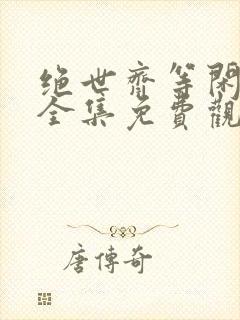 绝世齊等閑
全集免費觀
唐傳奇